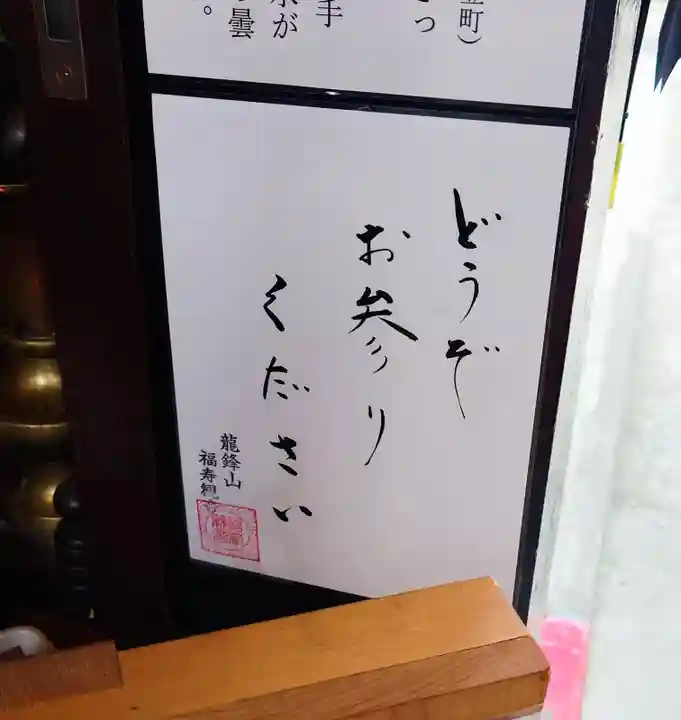 立町）
さっ
手
水が
曇
。
どうぞ
お参り
ください
龍鋒山
福寿観音